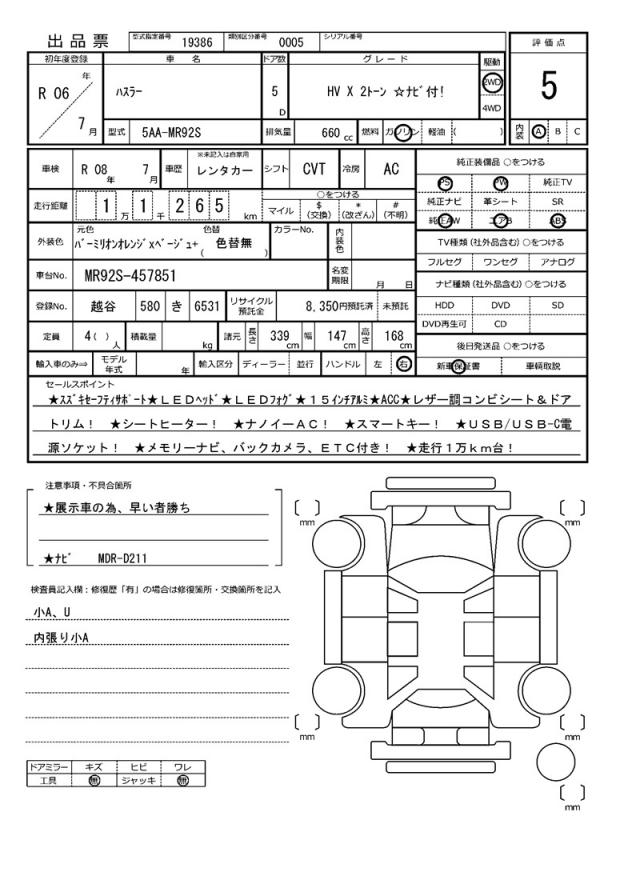 出品票 型式指定番号 19386 類別区分番号 0005 シリアル番号
評価点
5
内装 A B C
初年度登録 車名 ドア数 グレード 駆動
R 06 年 7 月 ハスラー 5 D HV X 2トーン ☆ナビ付! 2WD 4WD
型式 5AA-MR92S 排気量 660 cc 燃料 ガソリン 軽油 ( )
車検 R 08 年 7 月 車歴 ※未記入は自家用 レンタカー シフト CVT 冷房 AC
走行距離 1 万 1 千 2 6 5 km ○をつける マイル $(交換) *(改ざん) #(不明)
外装色 元色 バーミリオンオレンジxベージュ+ 色替 ( 色替無 ) カラーNo. 内装色
車台No. MR92S-457851 名変期限 月 日
登録No. 越谷 580 き 6531 リサイクル預託金 8,350円預託済 未預託
定員 4( ) 人 積載量 kg 諸元 長さ 339 cm 幅 147 cm 高さ 168 cm
輸入車のみ⇒ モデル年式 年 輸入区分 ディーラー 並行 ハンドル 左 右
純正装備品 ○をつける
PS PW 純正TV
純正ナビ 革シート SR
純正AW エアB ABS
TV種類(社外品含む)○をつける
フルセグ ワンセグ アナログ
ナビ種類(社外品含む)○をつける
HDD DVD SD
DVD再生可 CD
後日発送品 ○をつける
新車保証書 車輌取説
セールスポイント
★スズキセーフティサポート★LEDヘッド★LEDフォグ★15インチアルミ★ACC★レザー調コンビシート&ドア
トリム! ★シートヒーター! ★ナノイーAC! ★スマートキー! ★USB/USB-C電
源ソケット! ★メモリーナビ、バックカメラ、ETC付き! ★走行1万km台!
注意事項・不具合箇所
★展示車の為、早い者勝ち
★ナビ MDR-D211
検査員記入欄:修復歴「有」の場合は修復箇所・交換箇所を記入
小A、U
内張り小A
ドアミラー キズ ヒビ ワレ
工具 無 ジャッキ 無
〔 〕mm 〔 〕mm
〔 〕mm 〔 〕mm
〔 〕mm